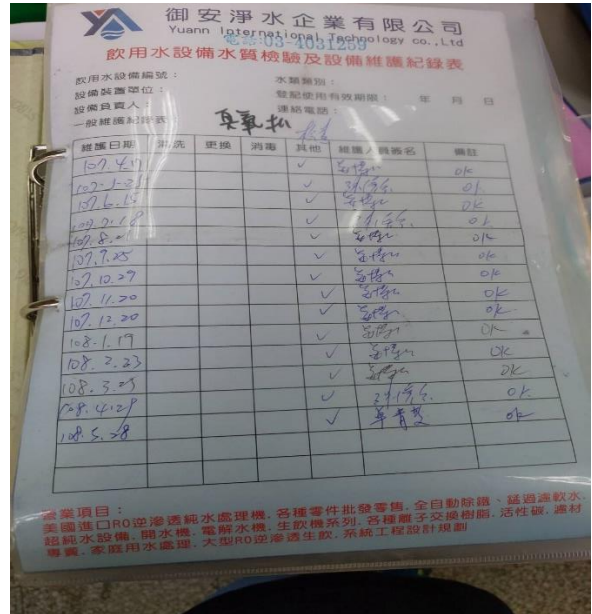 御安淨水企業有限公司
Yuann International Technology co.,Ltd
電話:03-4031259
飲用水設備水質檢驗及設備維護紀錄表
飲用水設備編號： 水類類別：
設備裝置單位： 登記使用有效期限： 年 月 日
設備負責人： 連絡電話：
一般維護紀錄表 臭氧机
維護日期 清洗 更換 消毒 其他 維護人員簽名 備註
107.4.17 ✓ OK
✓ OK
107.6.15 ✓ OK
107.7.18 ✓ OK
107.8. ✓ OK
107.9.25 ✓ OK
107.10.29 ✓ OK
107.11.20 ✓ OK
107.12.20 ✓ OK
108.1.19 ✓ OK
108.2.23 ✓ OK
108.3.25 ✓ OK
108.4.29 ✓ OK
108.5.28 ✓ OK
營業項目：
美國進口RO逆滲透純水處理機.各種零件批發零售.全自動除鐵、錳過濾軟水.
超純水設備.開水機.電解水機.生飲機系列.各種離子交換樹脂.活性碳.濾材
專賣.家庭用水處理.大型RO逆滲透生飲.系統工程設計規劃